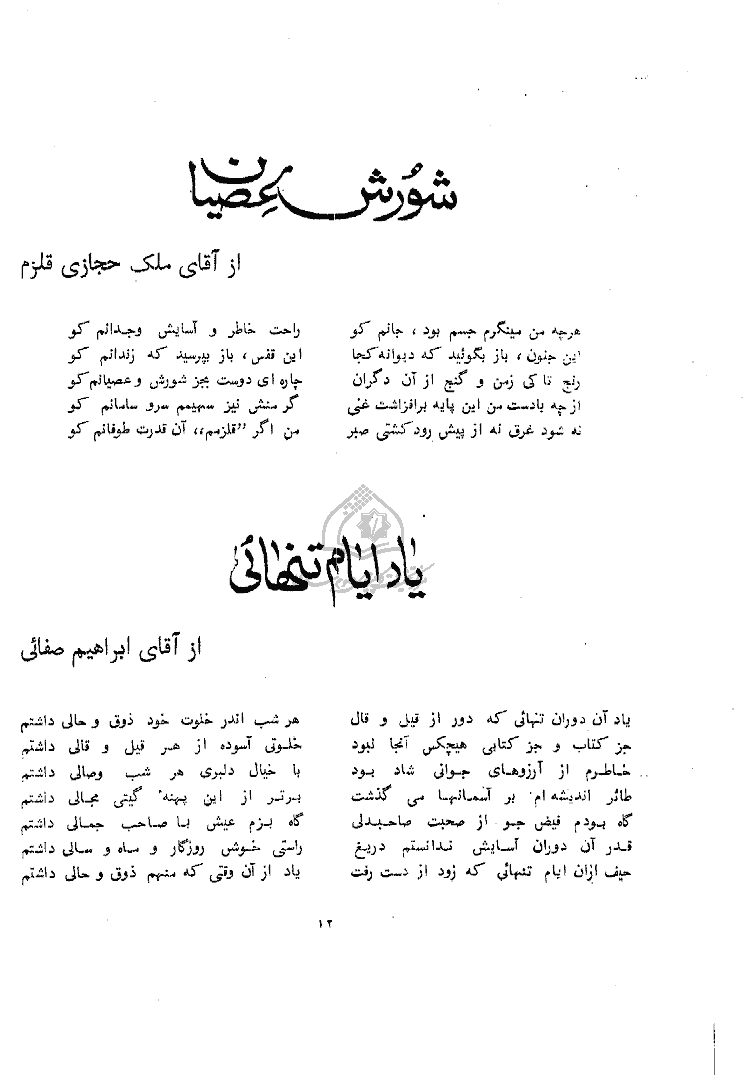 شورش عصیان
از آقای ملک حجازی قلزم
هرچه من مینگرم جسم بود ، جانم کو راحت خاطر و آسایش وجدانم کو
این جنون ، باز بگوئید که دیوانه کجا این قفس ، باز بپرسید که زندانم کو
رنج تاکی زمن و گنج از آن دگران چاره ای دوست بجز شورش و عصیانم کو
از چه بادست من این پایه برافراشت غنی گر منش نیز سهیمم سرو سامانم کو
نه شود غرق نه از پیش رود کشتی صبر من اگر "قلزمم،، آن قدرت طوفانم کو
یاد ایام تنهائی
از آقای ابراهیم صفائی
یاد آن دوران تنهائی که دور از قیل و قال هر شب اندر خلوت خود ذوق و حالی داشتم
جز کتاب و جز کتابی هیچکس آنجا نبود خلوتی آسوده از هر قیل و قالی داشتم
خاطرم از آرزوهای جوانی شاد بود با خیال دلبری هر شب وصالی داشتم
طائر اندیشه ام بر آسمانها می گذشت برتر از این پهنهٔ گیتی مجالی داشتم
گاه بودم فیض جو از صحبت صاحبدلی گاه بزم عیش با صاحب جمالی داشتم
قدر آن دوران آسایش ندانستم دریغ راستی خوش روزگار و ماه و سالی داشتم
حیف ازان ایام تنهائی که زود از دست رفت یاد از آن وقتی که منهم ذوق و حالی داشتم
۱۲